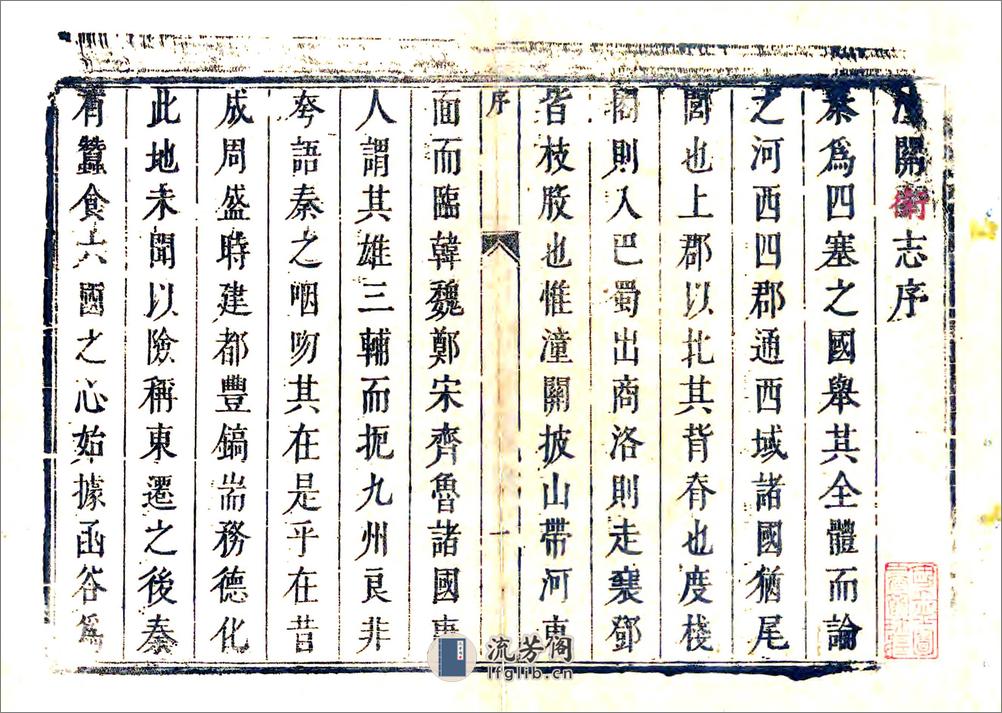 潼關衛志序
秦爲四塞之國舉其全體而論
之河西四郡通西域諸國猶尾
閭也上郡以北其背脊也度棧
閣則入巴蜀出商洛則走襄鄧
皆枝肢也惟潼關披山帶河東
序
一
面而臨韓魏鄭宋齊魯諸國專
人謂其雄三輔而扼九州良非
夸語秦之咽吻其在是乎在昔
成周盛時建都豐鎬耑務德化
此地未聞以險稱東遷之後秦
有蠶食六國之心始據函谷爲
流芳阁
lfglib.cn